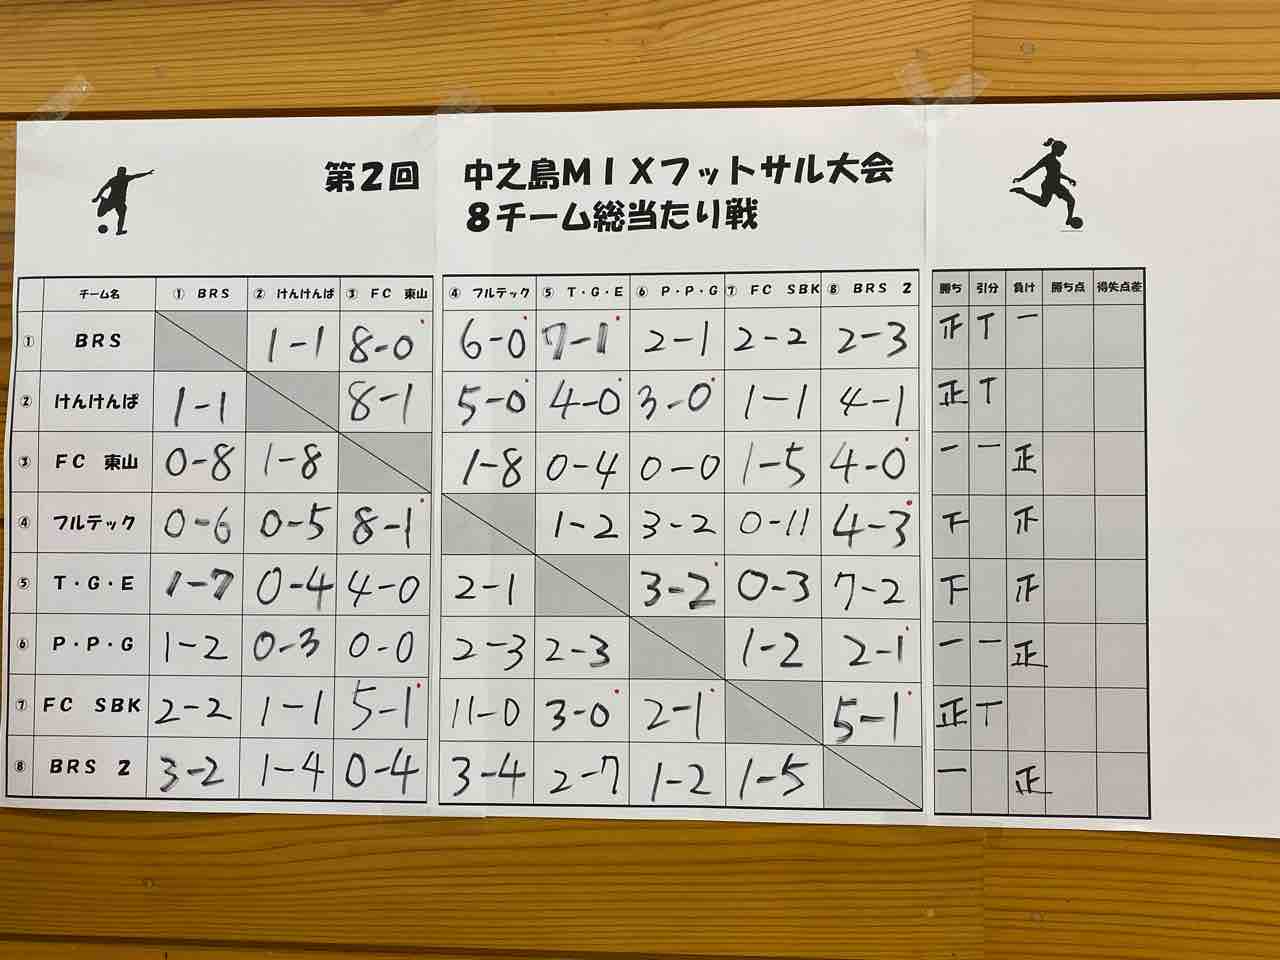 第2回 中之島MIXフットサル大会
8チーム総当たり戦
チーム名 ① BRS ② けんけんぱ ③ FC 東山 ④ フルテック ⑤ T・G・E ⑥ P・P・G ⑦ FC SBK ⑧ BRS 2 勝ち 引分 負け 勝ち点 得失点差
① BRS 1-1 8-0 6-0 7-1 2-1 2-2 2-3 正 T 一
② けんけんぱ 1-1 8-1 5-0 4-0 3-0 1-1 4-1 正 T
③ FC 東山 0-8 1-8 1-8 0-4 0-0 1-5 4-0 一 一 正
④ フルテック 0-6 0-5 8-1 1-2 3-2 0-11 4-3 下
⑤ T・G・E 1-7 0-4 4-0 2-1 3-2 0-3 7-2 下
⑥ P・P・G 1-2 0-3 0-0 2-3 2-3 1-2 2-1 一 一 正
⑦ FC SBK 2-2 1-1 5-1 11-0 3-0 2-1 5-1 正 T
⑧ BRS 2 3-2 1-4 0-4 3-4 2-7 1-2 1-5 一 正